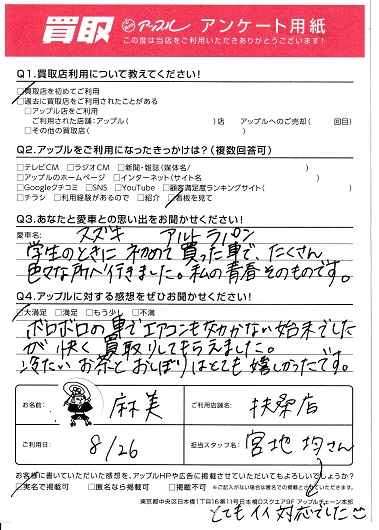 買取 アップル アンケート用紙
この度は当店をご利用いただきありがとうございます！
Q1.買取店利用について教えてください！
□買取店を初めてご利用
□過去に買取店をご利用されたことがある
□アップル店をご利用
ご利用された店舗：アップル( )店 アップルへのご売却( 回目)
□その他の買取店( )
Q2.アップルをご利用になったきっかけは？(複数回答可)
□テレビCM □ラジオCM □新聞・雑誌(媒体名/ )
□アップルのホームページ □インターネット(サイト名 )
□Googleクチコミ □SNS □YouTube □顧客満足度ランキングサイト( )
□チラシ □利用経験があるので □紹介 □看板を見て
Q3.あなたと愛車との思い出をお聞かせください！
愛車名： スズキ アルトラパン
学生のときに初めて買った車で、たくさん
色々な所へ行きました。私の青春そのものです。
Q4.アップルに対する感想をぜひお聞かせください！
□大満足 □満足 □もう少し □不満
ボロボロの車でエアコンも効かない始末でした
が快く買取りしてもらえました。
冷たいお茶とおしぼりはとても嬉しかったです。
お名前： 麻美 ご利用店舗名： 扶桑店
ご利用日： 8/26 担当スタッフ名： 宮地 均さん
お客様に書いていただいた感想を、アップルHPや広告に掲載させていただいてもよろしいでしょうか？
□実名で掲載可 □匿名なら掲載可 □掲載不可 ※ご記入がない場合は匿名での掲載とさせていただきます。
東京都中央区日本橋1丁目16番11号日本橋Dスクエア9F アップルチェーン本部
とてもイイ対応でした